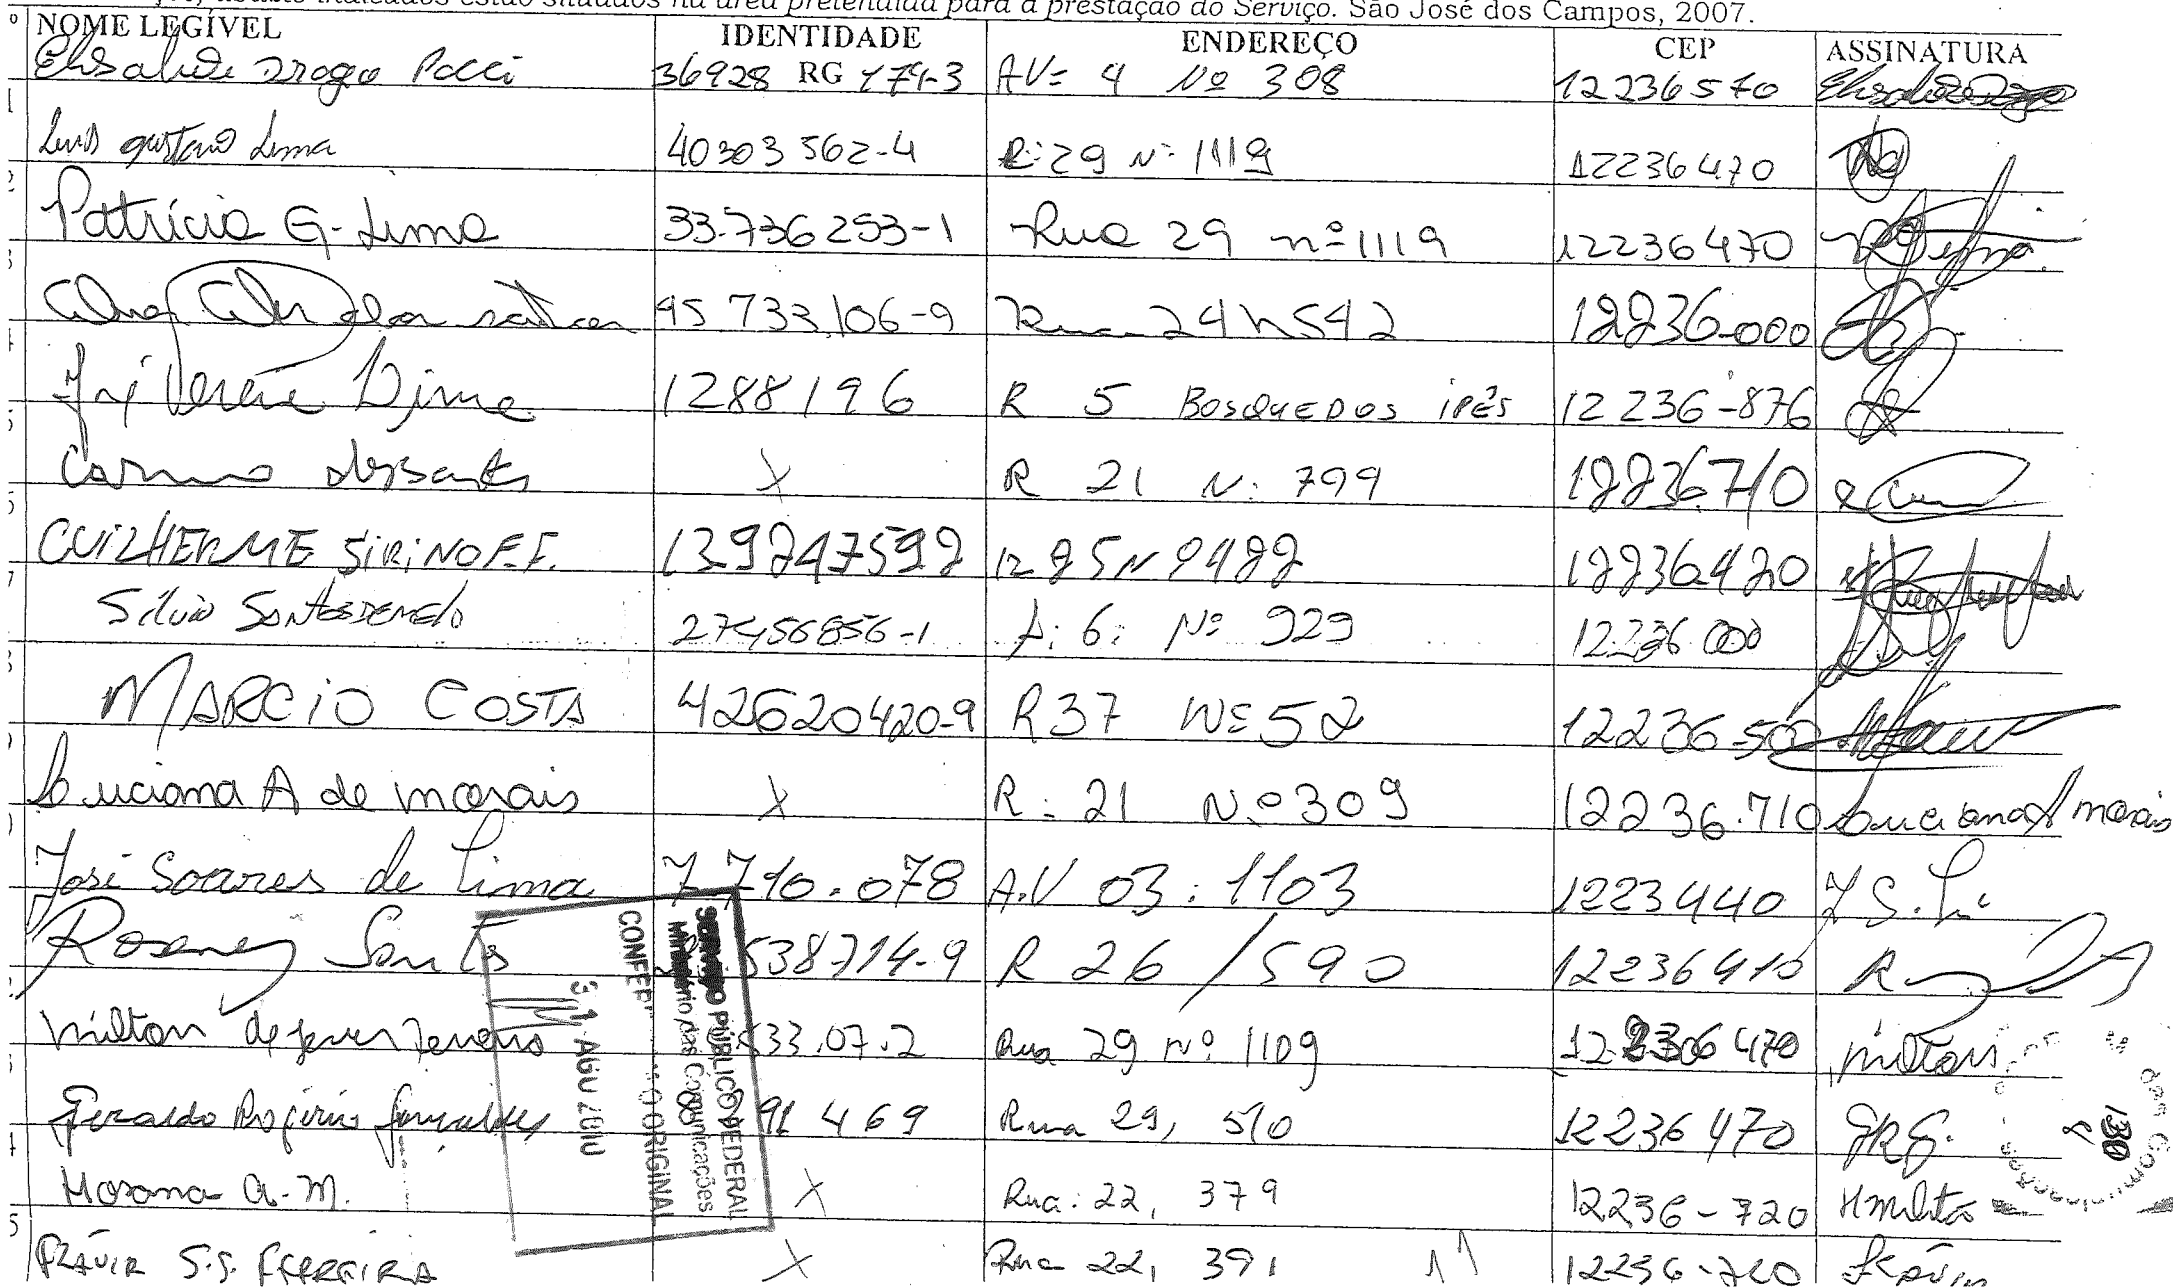 abaixo indicados estão situados na área pretendida para a prestação do Serviço. São José dos Campos, 2007.
NOME LEGÍVEL IDENTIDADE ENDEREÇO CEP ASSINATURA
Elisabete Drogo Pocci 36928 RG 174-3 AV= 4 Nº 308 12236570
Luis gustavo Lima 40303562-4 R: 29 Nº 1119 12236470
Patrícia G. Lima 33.736253-1 Rua 29 nº 1119 12236470
45 733,106-9 Rua 24 N 542 12236-000
1288196 R 5 BOSQUE DOS IPÊS 12236-876
Carmo dos Santos X R 21 N. 799 12236710
GUILHERME SIRINO F.F. 139247592 R 25 Nº 422 12236420
Silvio Santos DE Melo 27456856-1 6: Nº 929 12236 000
MARCIO COSTA 42620420-9 R 37 Nº 52 12236-50
Luciana A de morais X R: 21 N.º 309 12236.710 Luciana A morais
José Soares de Lima 7 710.078 A.V 03: 1103 1223440 J S. Li
Rosiney Santos 538714-9 R 26 / 590 12236410
milton de jesus 533.07.2 Rua 29 Nº 1109 12236470 milton
Geraldo Rogério Gonçalves 91 469 Rua 29, 510 12236470 GRG.
Hosana A. M. X Rua: 22, 379 12236-720
FLÁVIA S.S. FERREIRA X Rua 22, 391 11 12236-720 Flávia
SERVIÇO PÚBLICO FEDERAL
Ministério das Comunicações
CONFERE O ORIGINAL
31 AGO 2010
das Comunicações
130